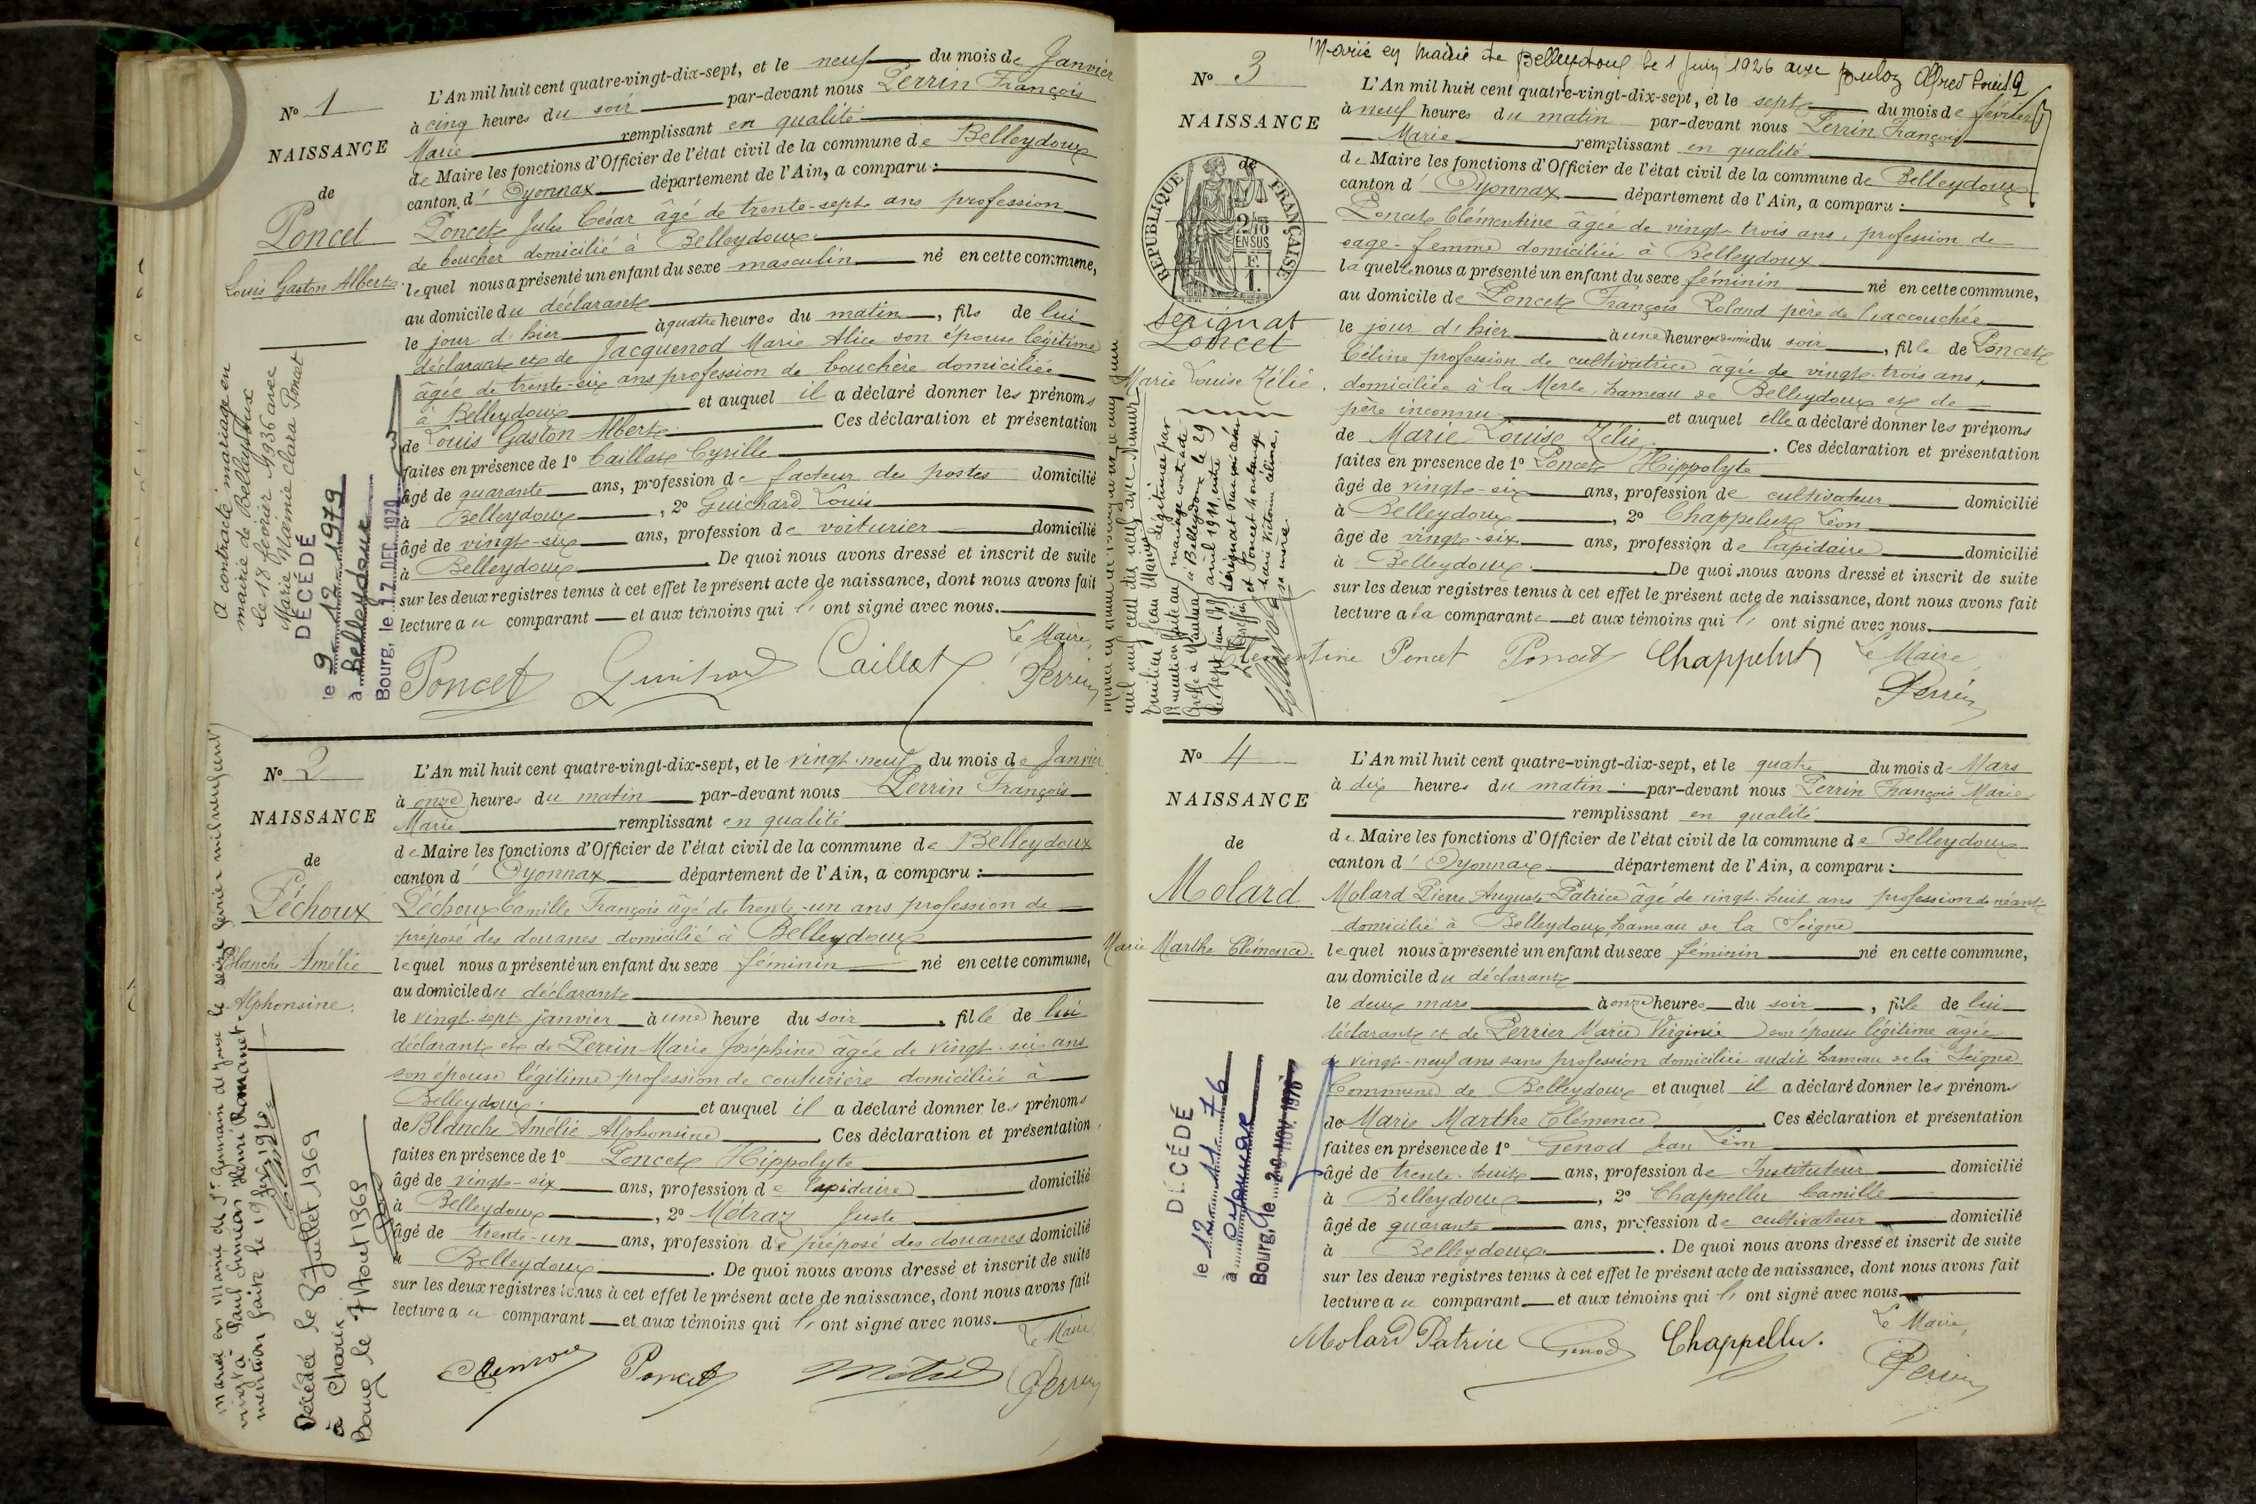 No 1
NAISSANCE
de
Poncet
Louis Gaston Albert
A contracté mariage en
mairie de Belleydoux
le 18 février 1936 avec
Marie Noémie Clara Poncet
DÉCÉDÉ
le 9 12 1979
à Belleydoux
Bourg, le 17 DEC. 1979
L'An mil huit cent quatre-vingt-dix-sept, et le neuf du mois de Janvier
à cinq heures du soir par-devant nous Perrin François
Marie remplissant en qualité
de Maire les fonctions d'Officier de l'état civil de la commune de Belleydoux
canton d' Oyonnax département de l'Ain, a comparu :
Poncet Jules César âgé de trente-sept ans profession
de boucher domicilié à Belleydoux
lequel nous a présenté un enfant du sexe masculin né en cette commune,
au domicile du déclarant
le jour d'hier à quatre heures du matin, fils de lui
déclarant et de Jacquenod Marie Alice son épouse légitime
âgée de trente-six ans profession de bouchère domiciliée
à Belleydoux et auquel il a déclaré donner les prénoms
de Louis Gaston Albert. Ces déclaration et présentation
faites en présence de 1o Caillat Cyrille
âgé de quarante ans, profession de facteur des postes domicilié
à Belleydoux, 2o Guichard Louis
âgé de vingt-six ans, profession de voiturier domicilié
à Belleydoux. De quoi nous avons dressé et inscrit de suite
sur les deux registres tenus à cet effet le présent acte de naissance, dont nous avons fait
lecture au comparant et aux témoins qui l' ont signé avec nous.
Le Maire,
Poncet Guichard Caillat Perrin
No 2
NAISSANCE
de
Péchoux
Blanche Amélie
Alphonsine.
Marié en Mairie de St Germain de Joux le seize février mil neuf cent
vingt à Paul Siméon Henri Romanet
mention faite le 19 fév. 1920
Décédée le 27 Juillet 1969
à Charix
Bourg le 7 Aout 1969
L'An mil huit cent quatre-vingt-dix-sept, et le vingt-neuf du mois de Janvier
à onze heures du matin par-devant nous Perrin François
Marie remplissant en qualité
de Maire les fonctions d'Officier de l'état civil de la commune de Belleydoux
canton d' Oyonnax département de l'Ain, a comparu :
Péchoux Camille François âgé de trente-un ans profession de
préposé des douanes domicilié à Belleydoux
lequel nous a présenté un enfant du sexe féminin né en cette commune,
au domicile du déclarant
le vingt-sept janvier à une heure du soir, fille de lui
déclarant et de Perrin Marie Joséphine âgée de vingt-six ans
son épouse légitime profession de couturière domiciliée à
Belleydoux et auquel il a déclaré donner les prénoms
de Blanche Amélie Alphonsine Ces déclaration et présentation
faites en présence de 1o Poncet Hippolyte
âgé de vingt-six ans, profession de lapidaire domicilié
à Belleydoux, 2o Métraz Juste
âgé de trente-un ans, profession de préposé des douanes domicilié
à Belleydoux. De quoi nous avons dressé et inscrit de suite
sur les deux registres tenus à cet effet le présent acte de naissance, dont nous avons fait
lecture au comparant et aux témoins qui l' ont signé avec nous.
Le Maire,
Poncet Perrin
Marié en Mairie de Belleydoux le 1 Juin 1926 avec Buloz Alfred Louis
No 3
NAISSANCE
de
RÉPUBLIQUE FRANÇAISE
2/10
EN SUS
E.
1.
Sérignat
Poncet
Marie Louise Zélie.
Légitimée par
mariage contracté
à Belleydoux le 29
avril 1911 entre
Sérignat
et Poncet
sa mère.
L'An mil huit cent quatre-vingt-dix-sept, et le sept du mois de février
à neuf heures du matin par-devant nous Perrin François
Marie remplissant en qualité
de Maire les fonctions d'Officier de l'état civil de la commune de Belleydoux
canton d' Oyonnax département de l'Ain, a comparu :
Poncet Clémentine âgée de vingt-trois ans, profession de
sage-femme domiciliée à Belleydoux
laquelle nous a présenté un enfant du sexe féminin né en cette commune,
au domicile de Poncet François Roland père de l'accouchée
le jour d'hier à une heure et demie du soir, fille de Poncet
Céline profession de cultivatrice âgée de vingt-trois ans,
domiciliée à la Merle, hameau de Belleydoux et de
père inconnu et auquel elle a déclaré donner les prénoms
de Marie Louise Zélie. Ces déclaration et présentation
faites en présence de 1o Poncet Hippolyte
âgé de vingt-six ans, profession de cultivateur domicilié
à Belleydoux, 2o Chappelut Léon
âgé de vingt-six ans, profession de lapidaire domicilié
à Belleydoux. De quoi nous avons dressé et inscrit de suite
sur les deux registres tenus à cet effet le présent acte de naissance, dont nous avons fait
lecture a la comparante et aux témoins qui l' ont signé avec nous.
Clémentine Poncet Poncet Chappelut Le Maire,
Perrin
No 4
NAISSANCE
de
Molard
Marie Marthe Clémence.
DÉCÉDÉ
le 12 11 76
à Oyonnax
Bourg, le 20 NOV. 1976
L'An mil huit cent quatre-vingt-dix-sept, et le quatre du mois de Mars
à dix heures du matin par-devant nous Perrin François Marie
remplissant en qualité
de Maire les fonctions d'Officier de l'état civil de la commune de Belleydoux
canton d' Oyonnax département de l'Ain, a comparu :
Molard Pierre Auguste Patrice âgé de vingt-huit ans profession de néant
domicilié à Belleydoux hameau de la Seigne
lequel nous a présenté un enfant du sexe féminin né en cette commune,
au domicile du déclarant
le deux mars à onze heures du soir, fille de lui
déclarant et de Perrier Marie Virginie son épouse légitime âgée
de vingt-neuf ans sans profession domiciliée audit hameau de la Seigne
Commune de Belleydoux et auquel il a déclaré donner les prénoms
de Marie Marthe Clémence Ces déclaration et présentation
faites en présence de 1o Genod Jean Léon
âgé de trente-huit ans, profession de Instituteur domicilié
à Belleydoux, 2o Chappellu Camille
âgé de quarante ans, profession de cultivateur domicilié
à Belleydoux. De quoi nous avons dressé et inscrit de suite
sur les deux registres tenus à cet effet le présent acte de naissance, dont nous avons fait
lecture au comparant et aux témoins qui l' ont signé avec nous.
Le Maire,
Molard Patrice Genod Chappellu. Perrin